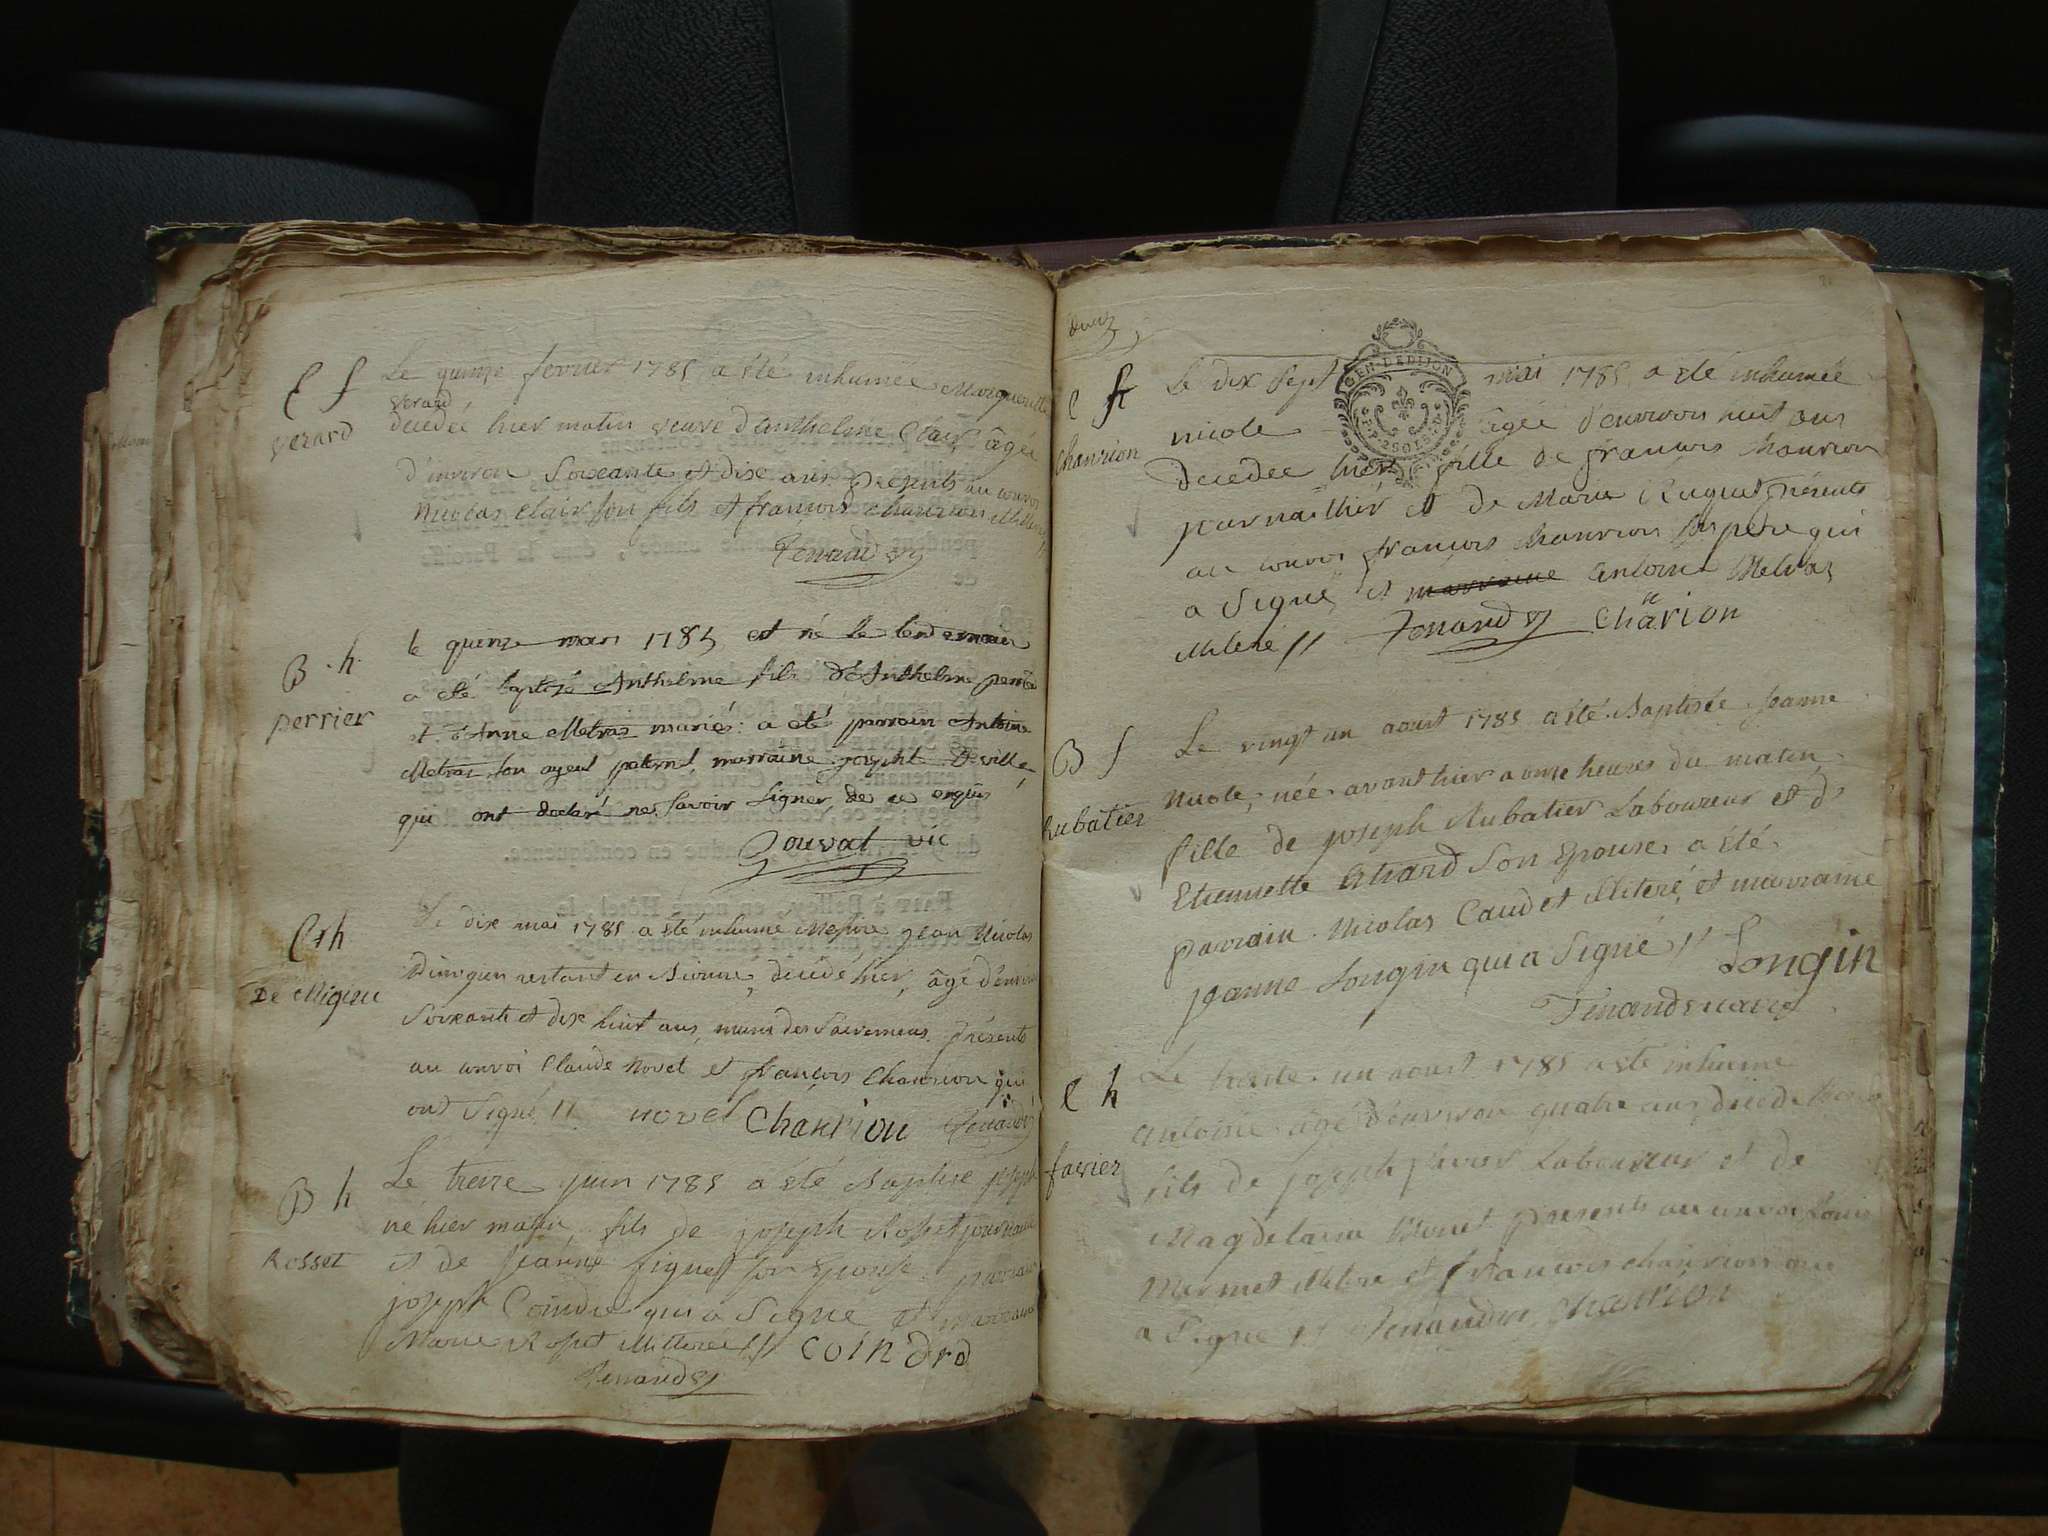 E f
verard
Le quinze fevrier 1785 a été inhumée Marguerite
verard
decedée hier matin veuve d'anthelme Clair, âgée
d'environ soixante et dix ans. Presents au convoi
Nicolas Clair son fils et françois chanrion
fenand
B. h.
perrier
le quinze mars 1785 et né le lendemain
a été baptizé Anthelme fils d'Anthelme perrier
et d'Anne Metras mariés: a été parrain Antoine
Metras son ayeul paternel, marraine josephte Deville,
qui ont declaré ne savoir signer de ce enquis
Jouval vic
E h
De Migieu
Le dix mai 1785 a été inhumé Messire jean Nicolas
restant en decedé hier, âgé d'environ
soixante et dix huit ans, muni des sacremens. présents
au convoi Claude Novel et françois Chanrion qui
ont signé //. novel Chanrion fenand
B h
Rosset
Le treize juin 1785 a été baptisé joseph
né hier matin, fils de joseph Rosset journalier
et de jeanne figuet son epouse. parrain
joseph Coindre qui a signé et marraine
Marie Rosset illiterée // coindre
fenand
E f
Chanrion
Le dix sept mai 1785 a été inhumée
GEN. DE DIJON
nicole âgée d'environ huit ans
decedée hier, fille de françois Chanrion
journaillier et de Marie Ruguet, présents
au convoi françois Chanrion son pere qui
a signé et marraine antoine Metras
illitere // fenand Charion
B f
Rubatier
Le vingt un aoust 1785 a été baptisée jeanne
nicole, née avant hier a onze heures du matin
fille de joseph Rubatier Laboureur et d'
Etiennette son epouse. a été
parrain Nicolas Caudet illiteré, et marraine
jeanne Longin qui a signé // Longin
fenand
E h
favier
Le trente un aoust 1785 a été inhumé
antoine âgé d'environ quatre ans, decedé
fils de joseph favier Laboureur et de
Magdelaine présents au convoi Louis
Mermet illitere et françois chanrion qui
a signé // fenand Chanrion